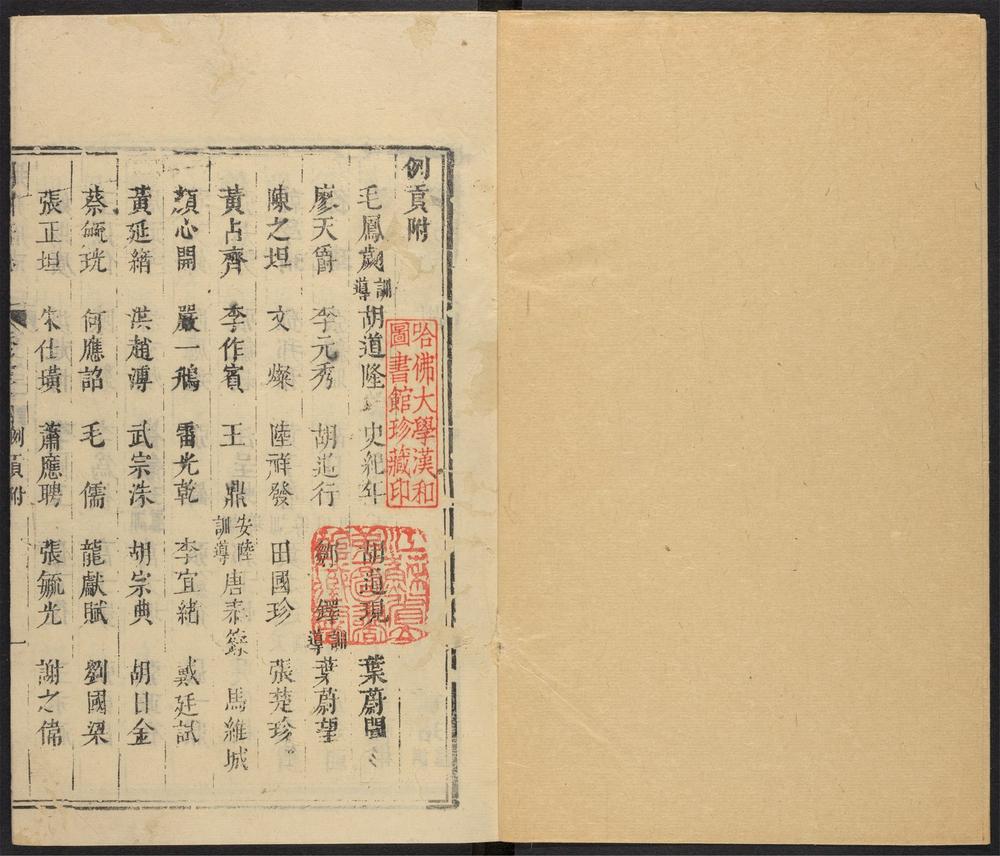 例貢附
毛鳳歲 訓導 胡道隆 史紀年 胡道現 葉蔚閶
廖天爵 李元秀 胡道行 鄒鐸 訓導 葉蔚望
陳之坦 文燦 陸祥發 田國珍 張楚珍
黃占齊 李作賓 王鼎 安陸訓導 唐泰 馬維城
顏心開 嚴一鵷 雷光乾 李宜緒 戴廷試
黃延緒 洪趙溥 武宗洙 胡宗典 胡日金
蔡毓珖 何應詔 毛儒 龍獻賦 劉國梁
張正坦 朱仕璜 蕭應聘 張毓光 謝之偉
例貢附
一
哈佛大學漢和
圖書館珍藏印